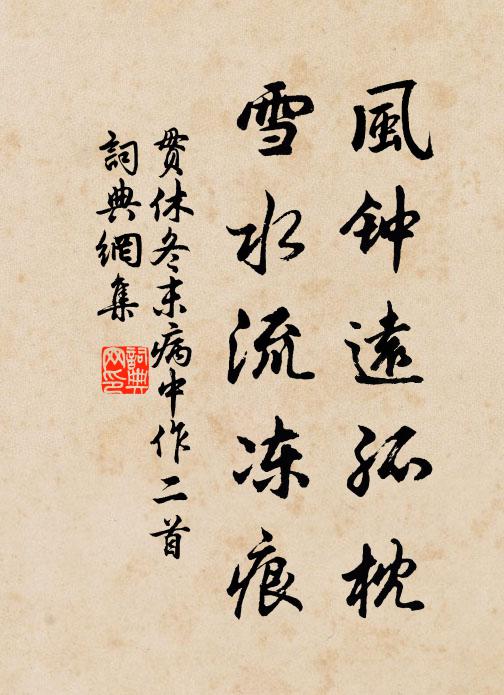 風钟遠孤枕
雪水流冻痕
贯休冬末病中作二首
詞典網集
詞典网印